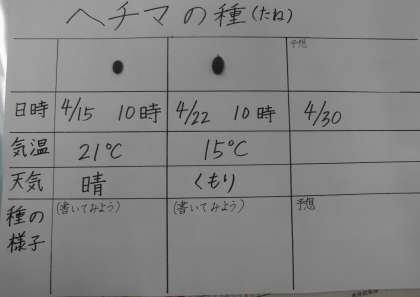 ヘチマの種(たね)
予想
日時 4/15 10時 4/22 10時 4/30
気温 21℃ 15℃
天気 晴 くもり
種の様子 (書いてみよう) (書いてみよう) 予想